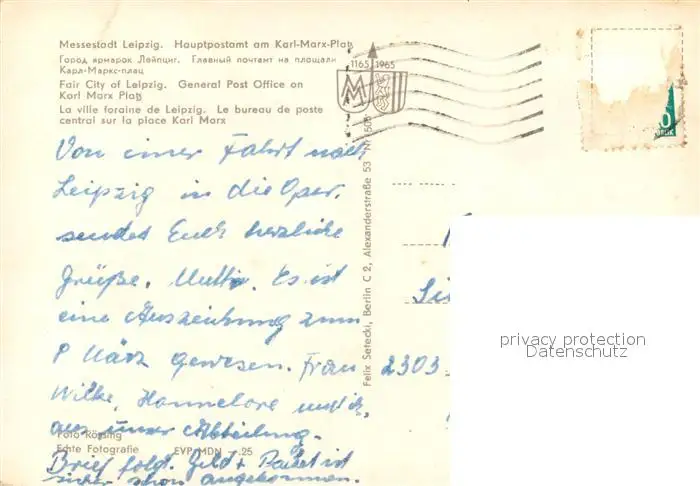 Messestadt Leipzig. Hauptpostamt am Karl-Marx-Platz
Город ярмарок Лейпциг. Главный почтамт на площали
Карл-Маркс-плац
Fair City of Leipzig. General Post Office on
Karl Marx Platz
La ville foraine de Leipzig. Le bureau de poste
central sur la place Karl Marx
1165 1965
Von einer Fahrt nach
Leipzig in die Oper,
sendet Euch herzliche
Grüße. Mutti. Es ist
eine Auszeichnung zum
8 März gewesen. Frau
Wilke, Hannelore und ich,
aus unser Abteilung.
Brief folgt. Geld + Paket ist
sicher schon angekommen.
Foto Rössing
Echte Fotografie EVP MDN -.25
Felix Setecki, Berlin C 2, Alexanderstraße 53
2303
privacy protection
Datenschutz